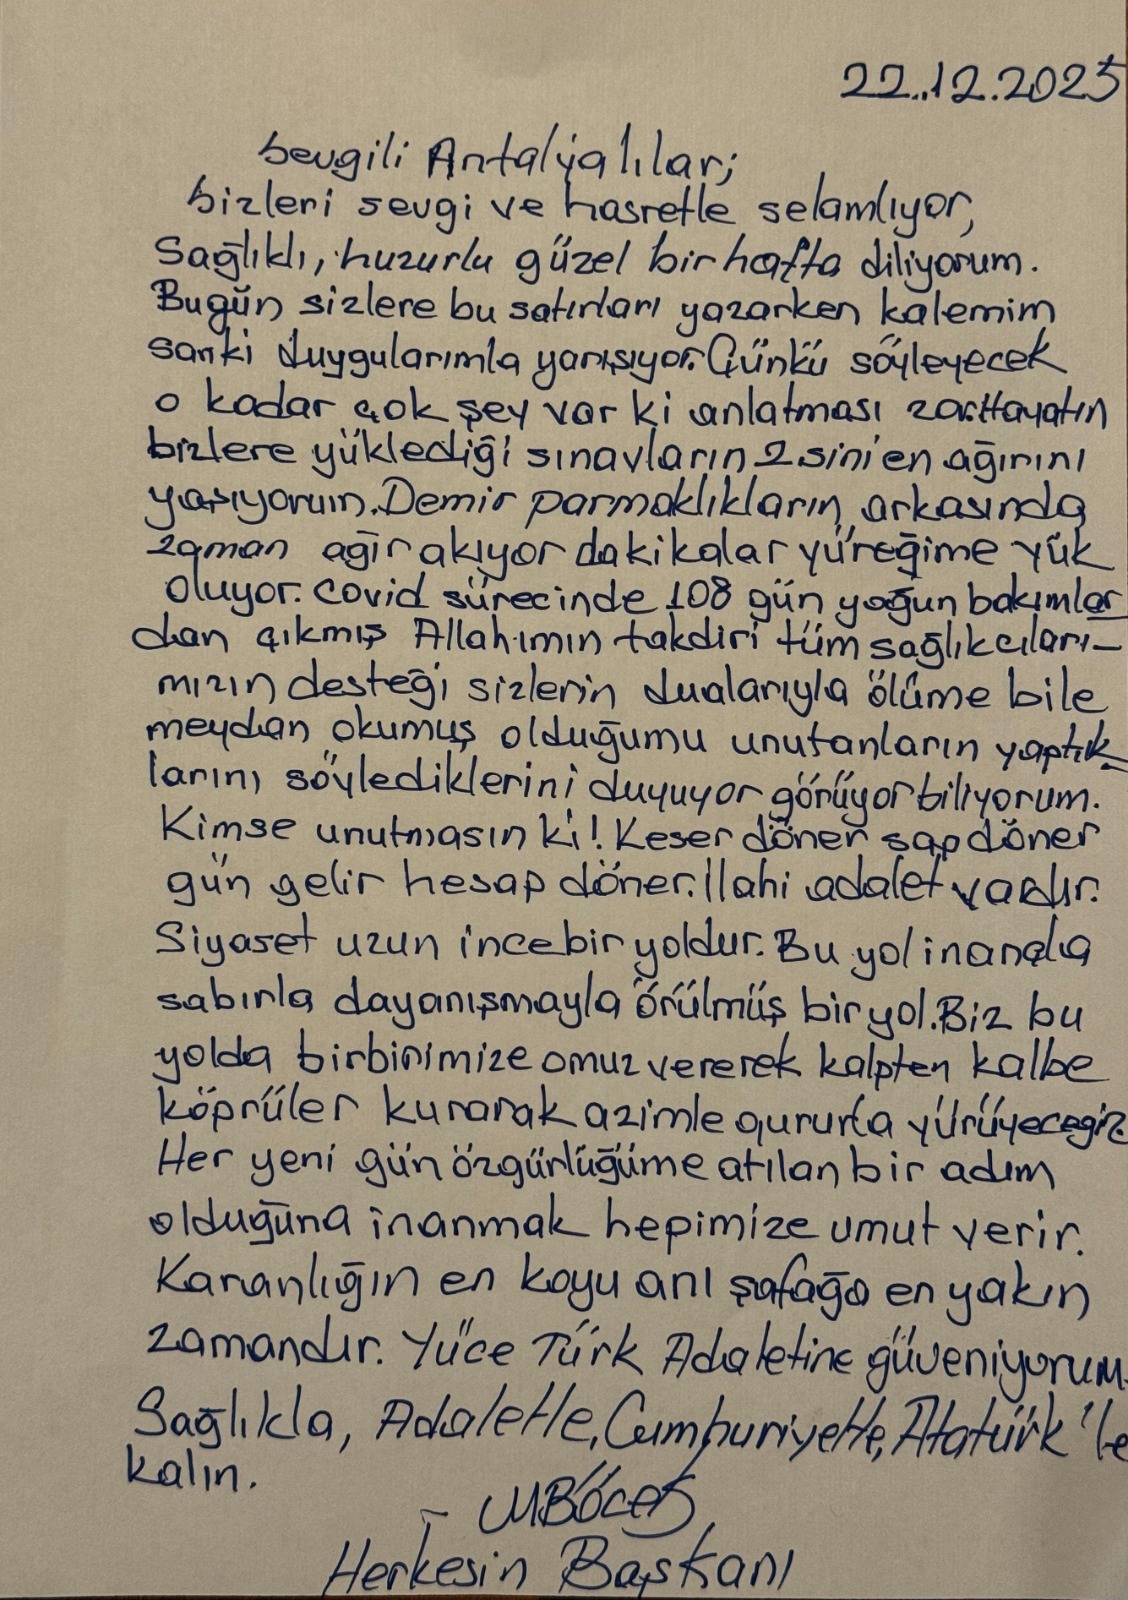 22.12.2025
Sevgili Antalyalılar;
bizleri sevgi ve hasretle selamlıyor,
Sağlıklı, huzurlu güzel bir hafta diliyorum.
Bugün sizlere bu satırları yazarken kalemim
sanki duygularımla yarışıyor. Günkü söyleyecek
o kadar çok şey var ki anlatması zor. Hayatın
bizlere yüklediği sınavların 2 sini en ağırını
yaşıyorum. Demir parmaklıkların arkasında
zaman ağır akıyor dakikalar yüreğime yük
oluyor. Covid sürecinde 108 gün yoğun bakımlar
dan çıkmış Allahımın takdiri tüm sağlıkcıları-
mızın desteği sizlerin dualarıyla ölüme bile
meydan okumuş olduğumu unutanların yaptık-
larını söylediklerini duyuyor görüyor biliyorum.
Kimse unutmasın ki! Keser döner sap döner
gün gelir hesap döner. İlahi adalet vardır.
Siyaset uzun ince bir yoldur. Bu yol inançla
sabırla dayanışmayla örülmüş bir yol. Biz bu
yolda birbirimize omuz vererek kalpten kalbe
köprüler kurarak azimle gururla yürüyeceğiz
Her yeni gün özgürlüğüme atılan bir adım
olduğuna inanmak hepimize umut verir.
Karanlığın en koyu anı şafağa en yakın
zamandır. Yüce Türk Adaletine güveniyorum.
Sağlıkla, Adaletle, Cumhuriyetle, Atatürk'le
kalın.
MBöcek
Herkesin Başkanı